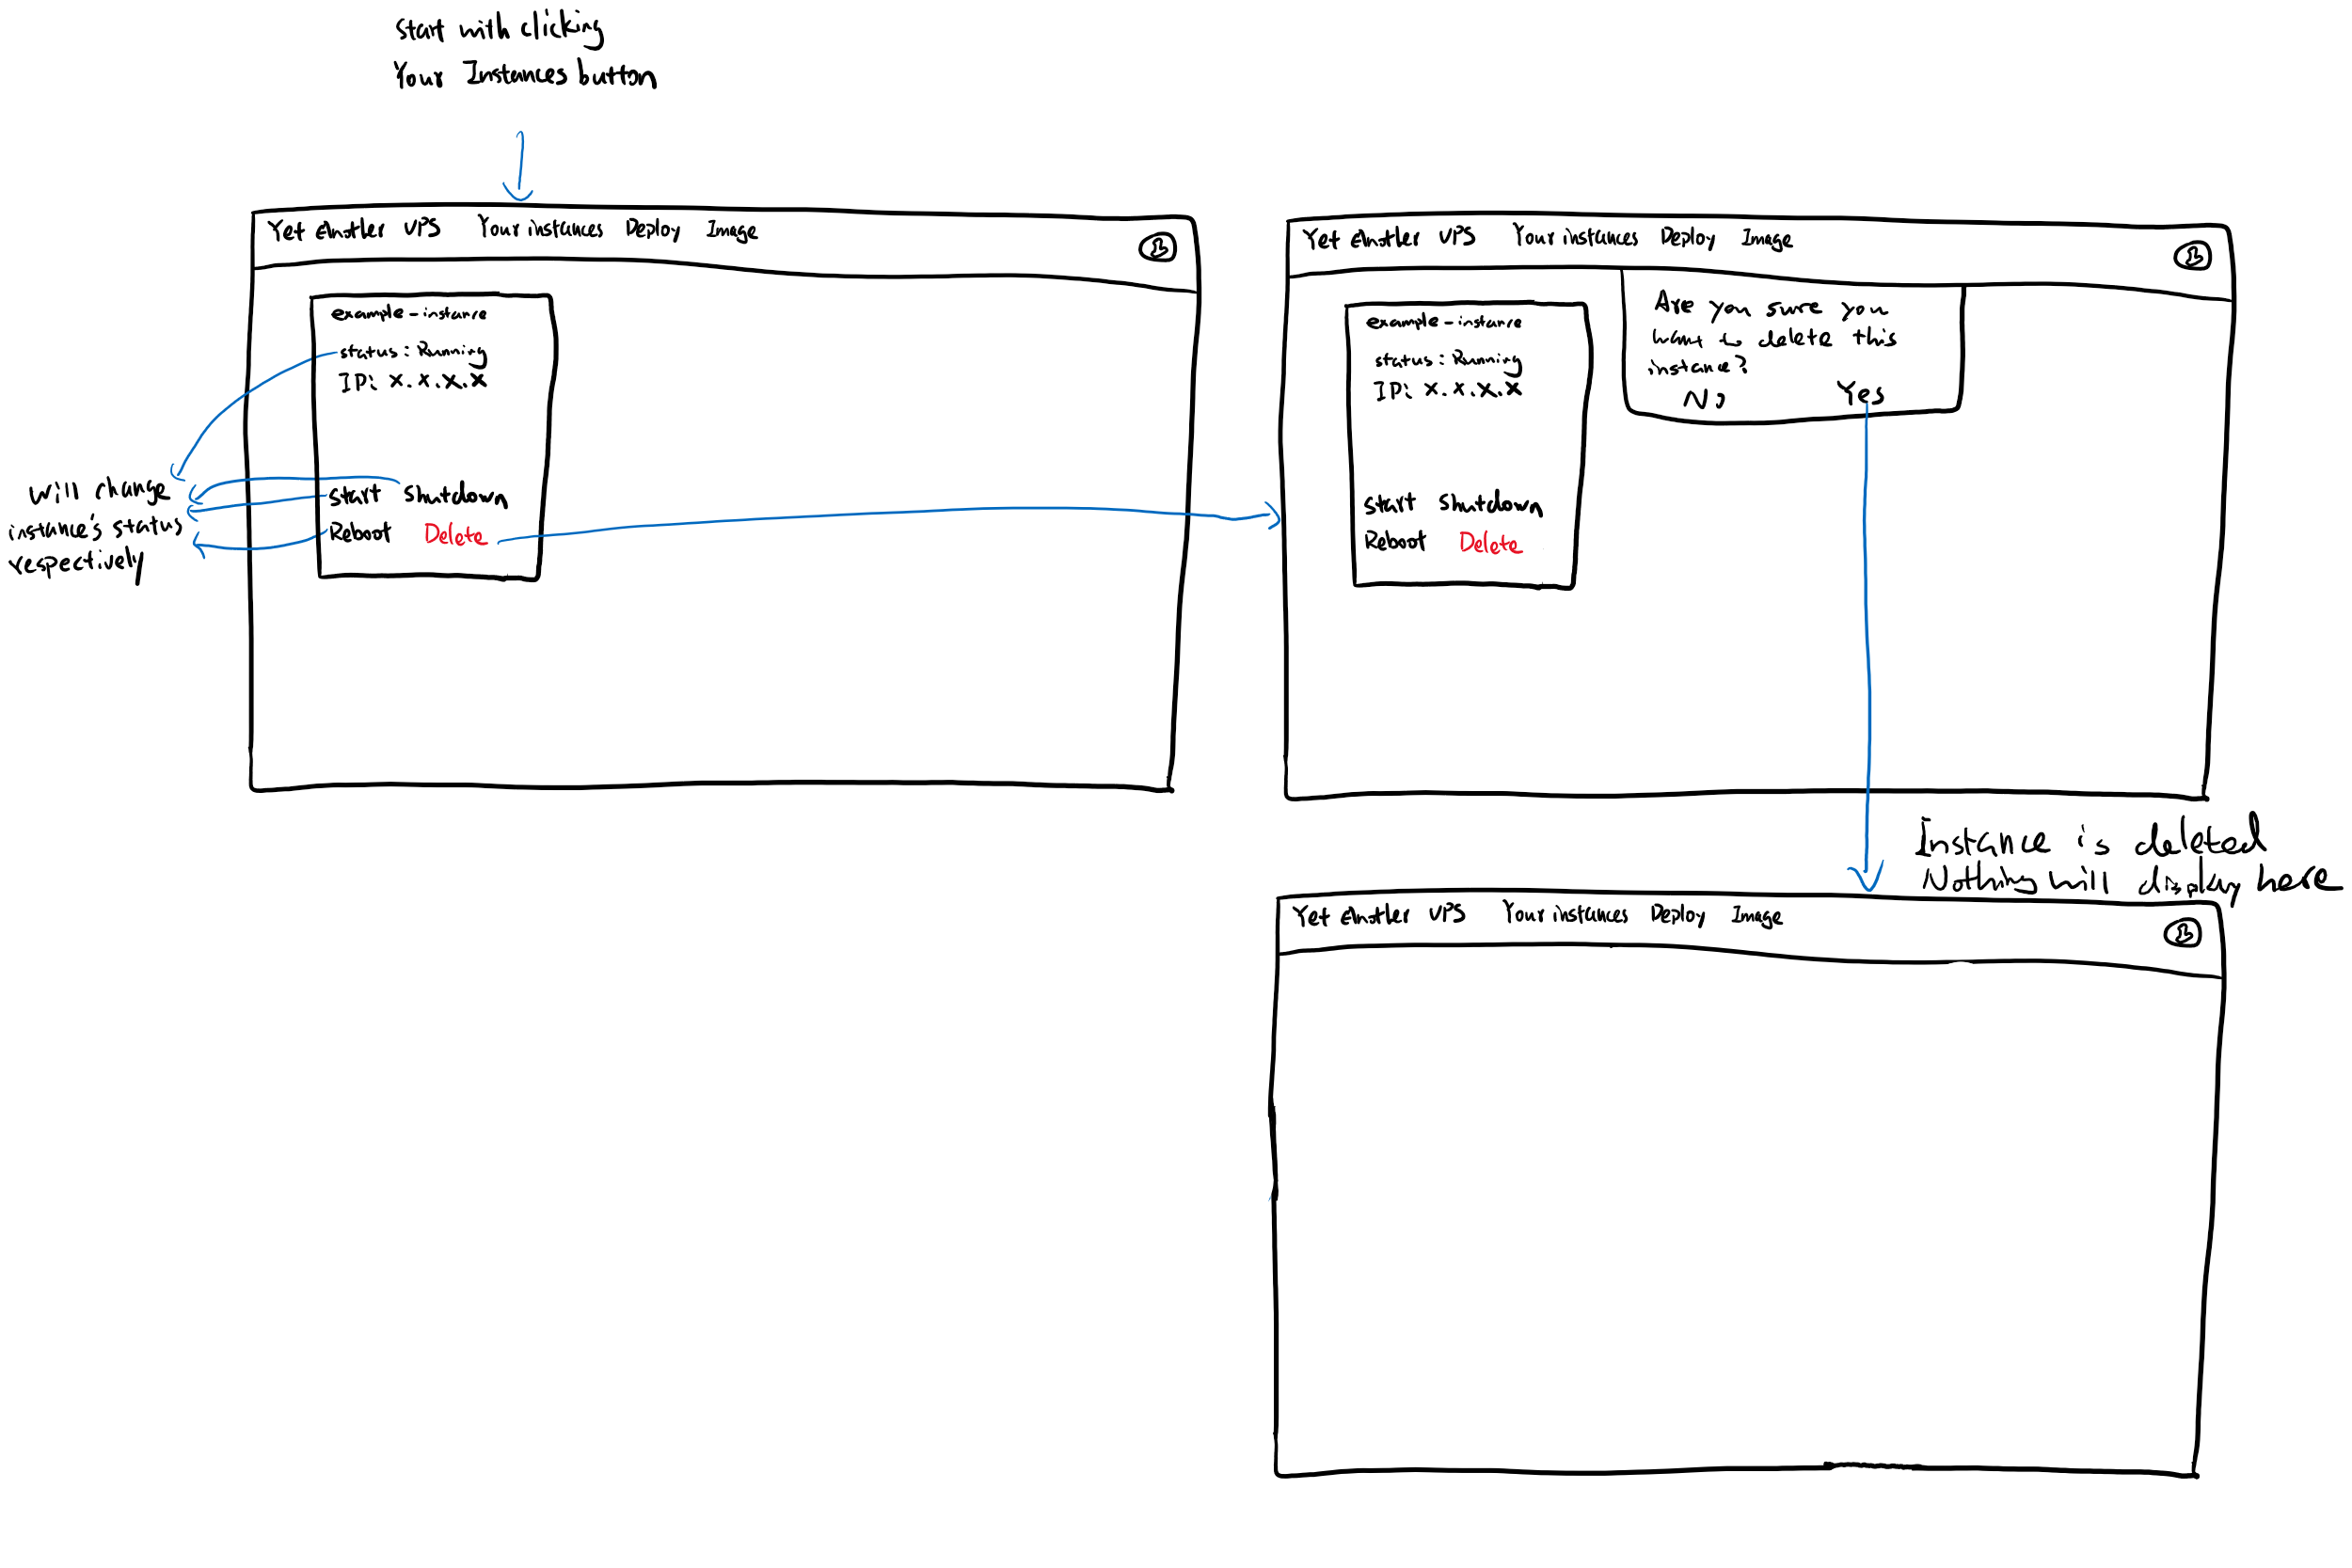 Start with clicking
Your Instances button
Yet Another VPS Your instances Deploy Image
example-instance
status: Running
IP: x.x.x.x
Start Shutdown
Reboot Delete
will change
instance's status
respectively
Yet Another VPS Your instances Deploy Image
example-instance
status: Running
IP: x.x.x.x
Start Shutdown
Reboot Delete
Are you sure you
want to delete this
instance?
No Yes
Instance is deleted
Nothing will display here
Yet Another VPS Your instances Deploy Image